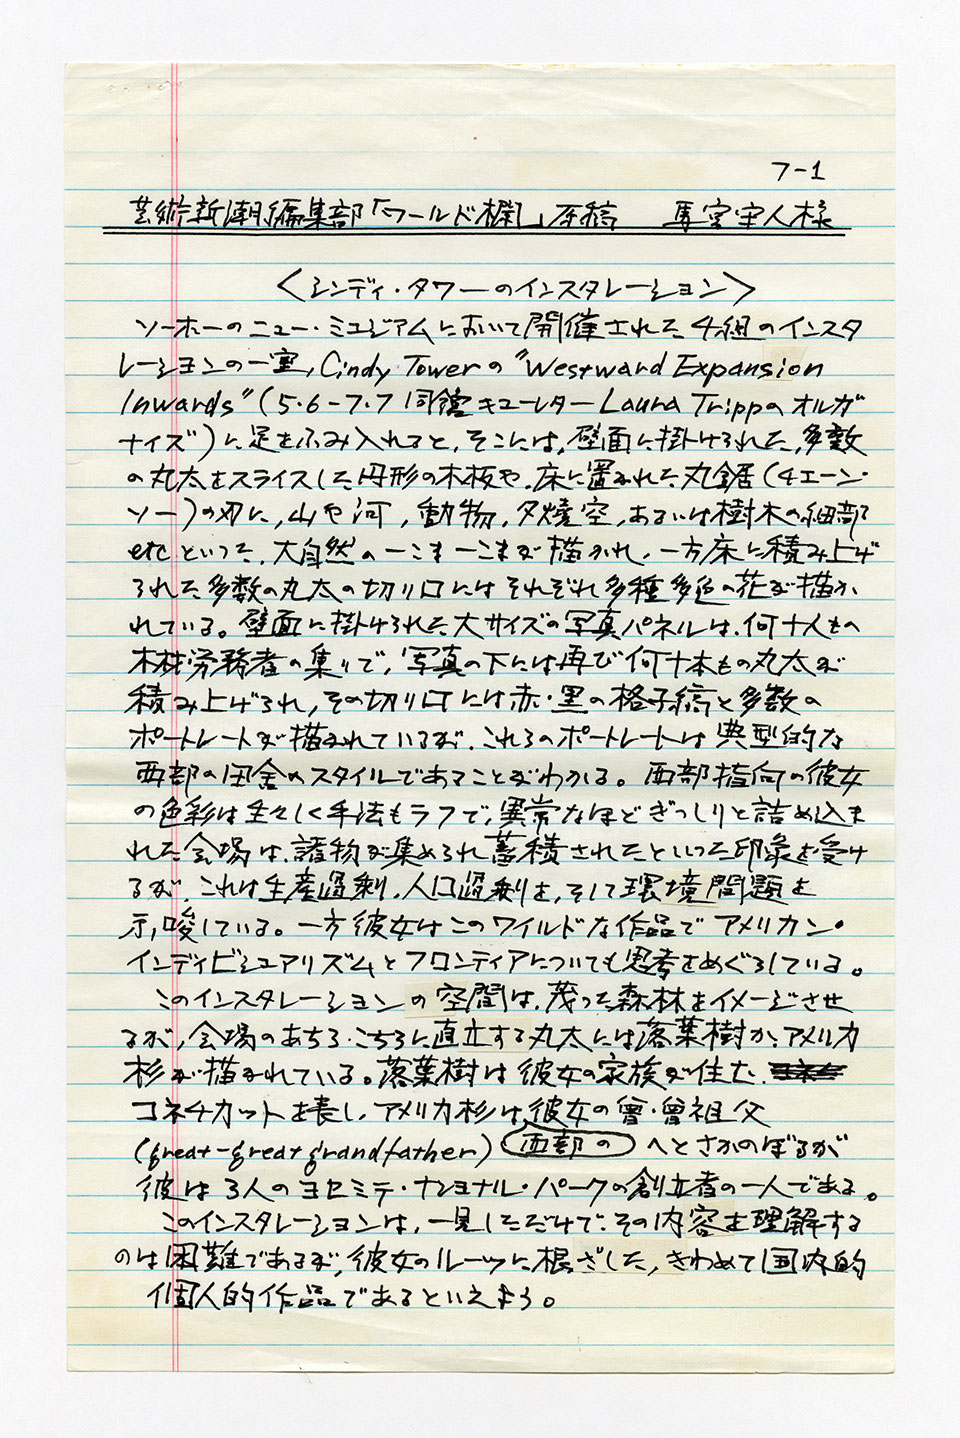 7-1
芸術新潮編集部「ワールド欄」原稿　馬宮宙人様
〈シンディ・タワーのインスタレーション〉
ソーホーのニュー・ミュジアムにおいて開催された4組のインスタ
レーションの一室, Cindy Towerの "Westward Expansion
Inwards" (5.6-7.7 同館キューレター Laura Trippのオルガ
ナイズ)に足をふみ入れると、そこには、壁面に掛けられた、多数
の丸太をスライスした円形の木板や、床に置かれた丸鋸(チエーン・
ソー)の刃に, 山や河, 動物, 夕焼空, あるいは樹木の細部
etcといった、大自然の一こま一こまが描かれ、一方床に積み上げ
られた多数の丸太の切り口にはそれぞれ多種多色の花が描か
れている。壁面に掛けられた大サイズの写真パネルは、何十人もの
木材労務者の集りで, 写真の下には再び何十本もの丸太が
積み上げられ, その切り口には赤・黒の格子縞と多数の
ポートレートが描かれているが、これらのポートレートは典型的な
西部の田舎のスタイルであることがわかる。西部指向の彼女
の色彩は生々しく手法もラフで, 異常なほどぎっしりと詰め込ま
れた会場は、諸物が集められ蓄積されたといった印象を受け
るが、これは生産過剰, 人口過剰を, そして環境問題を
示唆している。一方彼女はこのワイルドな作品でアメリカン・
インディビジュアリズムとフロンティアについても思考をめぐらしている。
このインスタレーションの空間は、茂った森林をイメージさせ
るが, 会場のあちらこちらに直立する丸太には落葉樹か、アメリカ
杉が描かれている。落葉樹は彼女の家族が住む、
コネチカットを表し、アメリカ杉は、彼女の曾・曾祖父
(great-great grandfather) 西部の へとさかのぼるが
彼は3人のヨセミテ・ナショナル・パークの創立者の一人である。
このインスタレーションは, 一見しただけで、その内容を理解する
のは困難であるが, 彼女のルーツに根ざした, きわめて国内的
個人的作品であるといえよう。